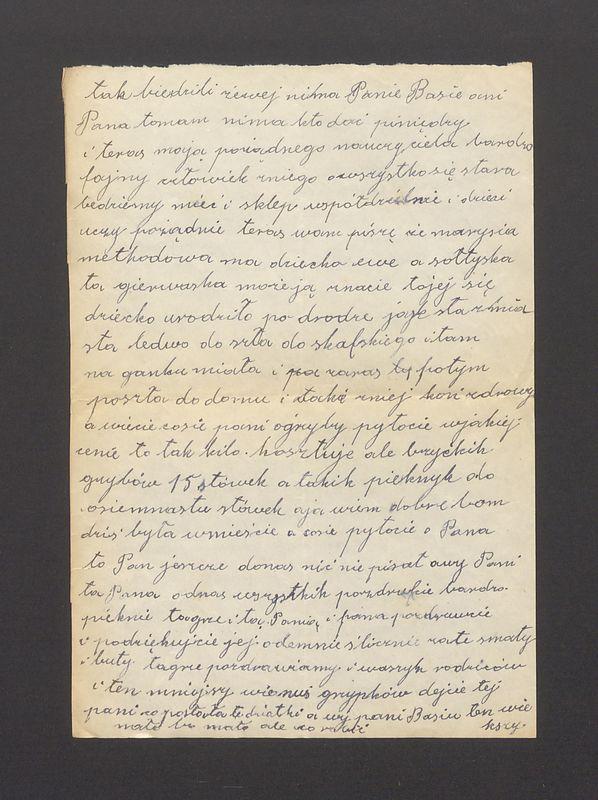 tak biedzili żewej nima Panie Basie ani
Pana tomam nima kto dać piniędzy
i teras mają porządnego nauczyciela bardzo
fajny człowiek zniego owszystko się stara
będziemy mieć i sklep współdzielnie i dzieci
uczy porządnie teras wam piszę że marysia
methodowa ma dziecko ewę a sołtyska
ta gierwaska możeją znacie tojej się
dziecko urodziło po drodze jage sta
sta ledwo do szła do skafskiego i tam
na ganku miała i zaras by potym
poszła do domu i taki zniej koń zdrowy
a wiecie cosie pani ogrzyby pytocie wjakiej
cenie to tak kilo kosztuje ale brzyckih
grzybów 15 stówek a takik pieknyk do
osiemnastu stówek aja wiem dobrze bom
dziś była wmieście a cosie pytocie o Pana
to Pan jeszcze donas nić nie pisał awy Pani
ta Pana odnas wszystkih pozdrufcie bardzo
pieknie tagze i tą Panią i pana pozdrawcie
i podziękujcie jej odemnie slicznie zate smaty
i buty tagze pozdrawiamy i waszyk rodziców
i ten mniejszy wionuś grzypków dejcie tej
pani co postała te dziatki a wy pani Basiu ten wie
kszy.
mało bo mało ale co robić